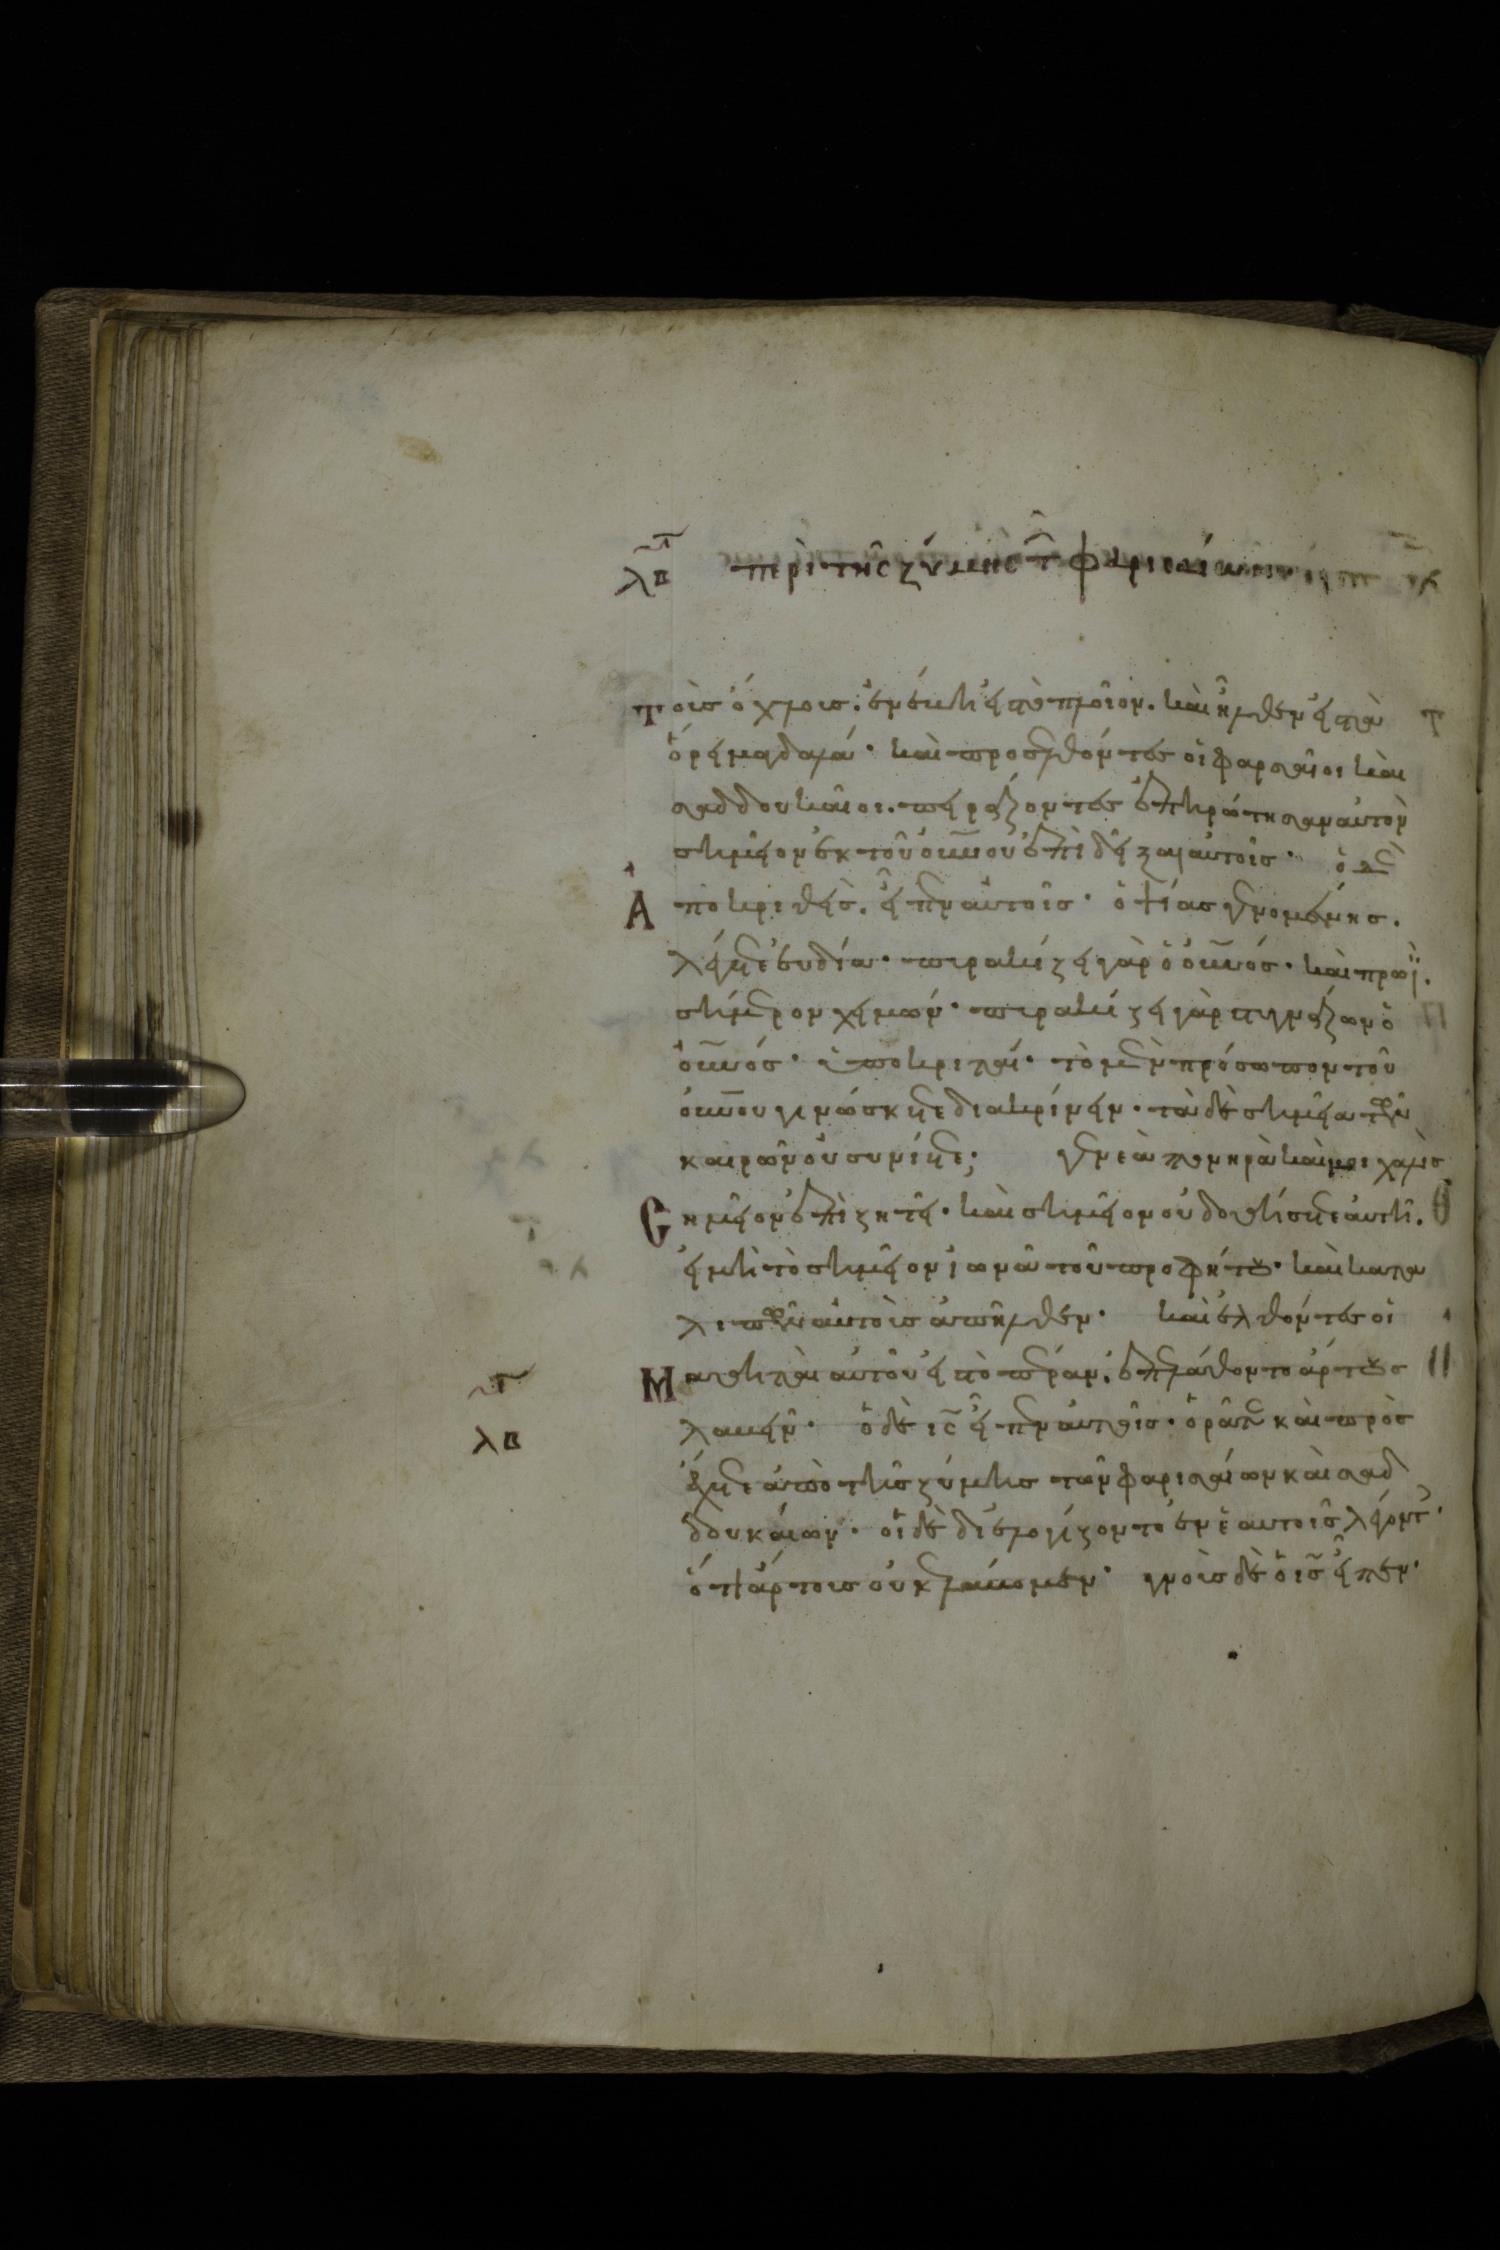 λβ περὶ τῆς ζύμης τ φαρισαίων
τοὺς ὄχλους. ἐνέβη εἰς τὸ πλοῖον. καὶ ἦλθεν εἰς τὰ
ὅρη μαγδαλά· καὶ προσελθόντες οἱ φαρισαῖοι καὶ
σαδδουκαῖοι. πειράζοντες ἐπηρώτησαν αὐτὸν
σημεῖον ἐκ τοῦ οὐνου ἐπιδεῖξαι αὐτοῖς· ὁ δὲ
Ἀποκριθεὶς. εἶπεν αὐτοῖς· ὀψίας γενομένης.
λέγετε εὐδία· πυράζει γὰρ ὁ οὐνος· καὶ πρωῒ.
σήμερον χειμών· πυράζει γὰρ στυγνάζων ὁ
οὐνος· ὑποκριταί· τὸ μὲν πρόσωπον τοῦ
οὐνου γινώσκετε διακρίνειν· τὰ δὲ σημεῖα τῶν
καιρῶν οὐ συνίετε; γενεὰ πονηρὰ καὶ μοιχαλὶς
Σημεῖον ἐπιζητεῖ· καὶ σημεῖον οὐ δοθήσεται αὐτῇ.
εἰ μὴ τὸ σημεῖον ἰωνᾶ τοῦ προφήτου· καὶ κατα
λιπὼν αὐτοὺς ἀπῆλθεν· καὶ ἐλθόντες οἱ
Μαθηταὶ αὐτοῦ εἰς τὸ πέραν. ἐπελάθοντο ἄρτους
λβ λαβεῖν· ὁ δὲ ις εἶπεν αὐτοῖς· ὁρᾶτε καὶ προς
έχετε ἀπὸ τῆς ζύμης τῶν φαρισαίων καὶ σαδ
δουκαίων· οἱ δὲ διελογίζοντο ἐν ἑαυτοῖς λέγοντ·
ὅτι ἄρτους οὐκ ἐλάβομεν· γνοὺς δὲ ὁ ις εἶπεν·